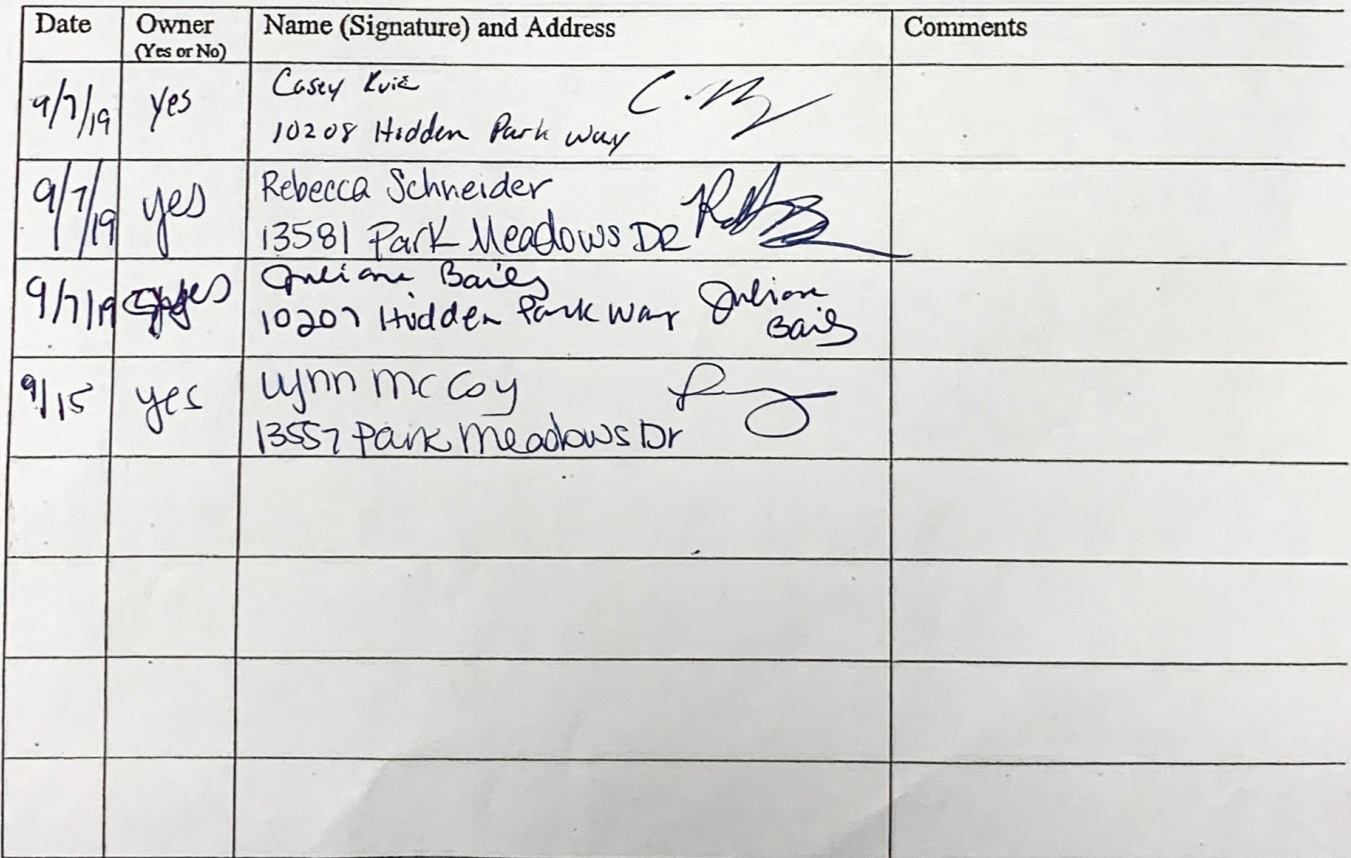 Date Owner Name (Signature) and Address Comments
(Yes or No)
9/7/19 yes Casey
10208 Hidden Park Way
9/7/19 yes Rebecca Schneider
13581 Park Meadows DR
9/7/19 yes Juliane Bails
10207 Hidden Park Way Juliane
Bails
9/15 yes Lynn McCoy
13557 Park Meadows Dr